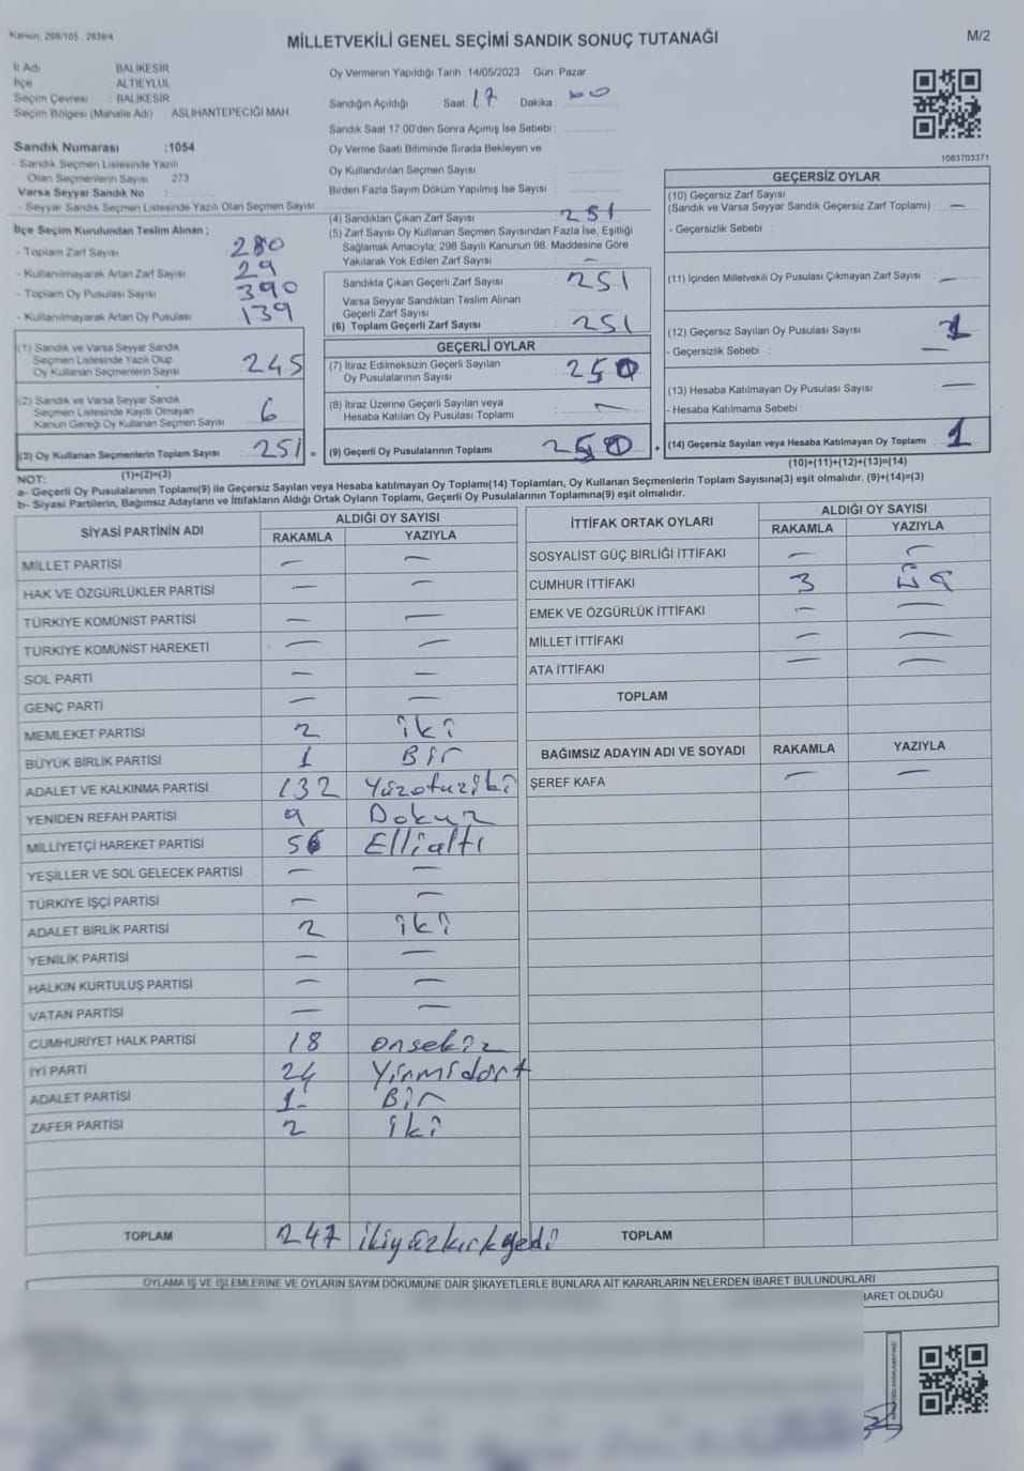 MİLLETVEKİLİ GENEL SEÇİMİ SANDIK SONUÇ TUTANAĞI
M/2
İl Adı BALIKESİR
İlçe ALTIEYLÜL
Seçim Çevresi : BALIKESİR
Seçim Bölgesi (Mahalle Adı) ASLIHANTEPECİĞİ MAH.
Oy Vermenin Yapıldığı Tarih 14/05/2023 Gün: Pazar
Sandığın Açıldığı Saat 17 Dakika 00
Sandık Saat 17:00'den Sonra Açılmış İse Sebebi :
Sandık Numarası :1054
- Sandık Seçmen Listesinde Yazılı
Olan Seçmenlerin Sayısı 273
Varsa Seyyar Sandık No :
- Seyyar Sandık Seçmen Listesinde Yazılı Olan Seçmen Sayısı
Oy Verme Saati Bitiminde Sırada Bekleyen ve
Oy Kullandırılan Seçmen Sayısı
Birden Fazla Sayım Döküm Yapılmış İse Sayısı
1083703371
İlçe Seçim Kurulundan Teslim Alınan ;
- Toplam Zarf Sayısı 280
- Kullanılmayarak Artan Zarf Sayısı 29
- Toplam Oy Pusulası Sayısı 390
- Kullanılmayarak Artan Oy Pusulası 139
(1) Sandık ve Varsa Seyyar Sandık
Seçmen Listesinde Yazılı Olup
Oy Kullanan Seçmenlerin Sayısı 245
(2) Sandık ve Varsa Seyyar Sandık
Seçmen Listesinde Kayıtlı Olmayan
Kanun Gereği Oy Kullanan Seçmen Sayısı 6
(3) Oy Kullanan Seçmenlerin Toplam Sayısı 251
(1)+(2)=(3)
(4) Sandıktan Çıkan Zarf Sayısı 251
(5) Zarf Sayısı Oy Kullanan Seçmen Sayısından Fazla İse, Eşitliği
Sağlamak Amacıyla; 298 Sayılı Kanunun 98. Maddesine Göre
Yakılarak Yok Edilen Zarf Sayısı –
Sandıkta Çıkan Geçerli Zarf Sayısı 251
Varsa Seyyar Sandıktan Teslim Alınan
Geçerli Zarf Sayısı
(6) Toplam Geçerli Zarf Sayısı 251
GEÇERLİ OYLAR
(7) İtiraz Edilmeksizin Geçerli Sayılan
Oy Pusulalarının Sayısı 250
(8) İtiraz Üzerine Geçerli Sayılan veya
Hesaba Katılan Oy Pusulası Toplamı –
(9) Geçerli Oy Pusulalarının Toplamı 250
GEÇERSİZ OYLAR
(10) Geçersiz Zarf Sayısı
(Sandık ve Varsa Seyyar Sandık Geçersiz Zarf Toplamı) –
- Geçersizlik Sebebi :
(11) İçinden Milletvekili Oy Pusulası Çıkmayan Zarf Sayısı –
(12) Geçersiz Sayılan Oy Pusulası Sayısı 1
- Geçersizlik Sebebi : –
(13) Hesaba Katılmayan Oy Pusulası Sayısı –
- Hesaba Katılmama Sebebi :
(14) Geçersiz Sayılan veya Hesaba Katılmayan Oy Toplamı 1
(10)+(11)+(12)+(13)=(14)
NOT:
a- Geçerli Oy Pusulalarının Toplamı(9) ile Geçersiz Sayılan veya Hesaba katılmayan Oy Toplamı(14) Toplamları, Oy Kullanan Seçmenlerin Toplam Sayısına(3) eşit olmalıdır. (9)+(14)=(3)
b- Siyasi Partilerin, Bağımsız Adayların ve İttifakların Aldığı Ortak Oyların Toplamı, Geçerli Oy Pusulalarının Toplamına(9) eşit olmalıdır.
SİYASİ PARTİNİN ADI ALDIĞI OY SAYISI
RAKAMLA YAZIYLA
MİLLET PARTİSİ – –
HAK VE ÖZGÜRLÜKLER PARTİSİ – –
TÜRKİYE KOMÜNİST PARTİSİ – –
TÜRKİYE KOMÜNİST HAREKETİ – –
SOL PARTİ – –
GENÇ PARTİ – –
MEMLEKET PARTİSİ 2 iki
BÜYÜK BİRLİK PARTİSİ 1 Bir
ADALET VE KALKINMA PARTİSİ 132 Yüzotuziki
YENİDEN REFAH PARTİSİ 9 Dokuz
MİLLİYETÇİ HAREKET PARTİSİ 56 Ellialtı
YEŞİLLER VE SOL GELECEK PARTİSİ – –
TÜRKİYE İŞÇİ PARTİSİ – –
ADALET BİRLİK PARTİSİ 2 iki
YENİLİK PARTİSİ – –
HALKIN KURTULUŞ PARTİSİ – –
VATAN PARTİSİ – –
CUMHURİYET HALK PARTİSİ 18 onsekiz
İYİ PARTİ 24 Yirmidört
ADALET PARTİSİ 1 Bir
ZAFER PARTİSİ 2 iki
TOPLAM 247 ikiyüzkırkyedi
İTTİFAK ORTAK OYLARI ALDIĞI OY SAYISI
RAKAMLA YAZIYLA
SOSYALİST GÜÇ BİRLİĞİ İTTİFAKI – –
CUMHUR İTTİFAKI 3 Üç
EMEK VE ÖZGÜRLÜK İTTİFAKI – –
MİLLET İTTİFAKI – –
ATA İTTİFAKI – –
TOPLAM
BAĞIMSIZ ADAYIN ADI VE SOYADI RAKAMLA YAZIYLA
ŞEREF KAFA – –
TOPLAM
OYLAMA İŞ VE İŞLEMLERİNE VE OYLARIN SAYIM DÖKÜMÜNE DAİR ŞİKAYETLERLE BUNLARA AİT KARARLARIN NELERDEN İBARET BULUNDUKLARI
BARET OLDUĞU